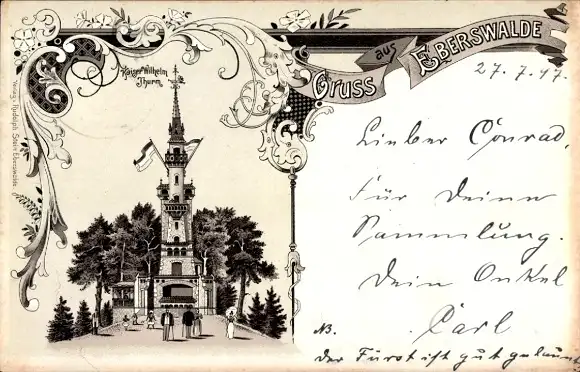 Gruss aus Eberswalde
Kaiser Wilhelm
Thurm.
27. 7. 97.
Lieber Conrad,
Für Deine
Sammlung.
Dein Onkel
Carl
NB.
Der Fürst ist gut gelaunt